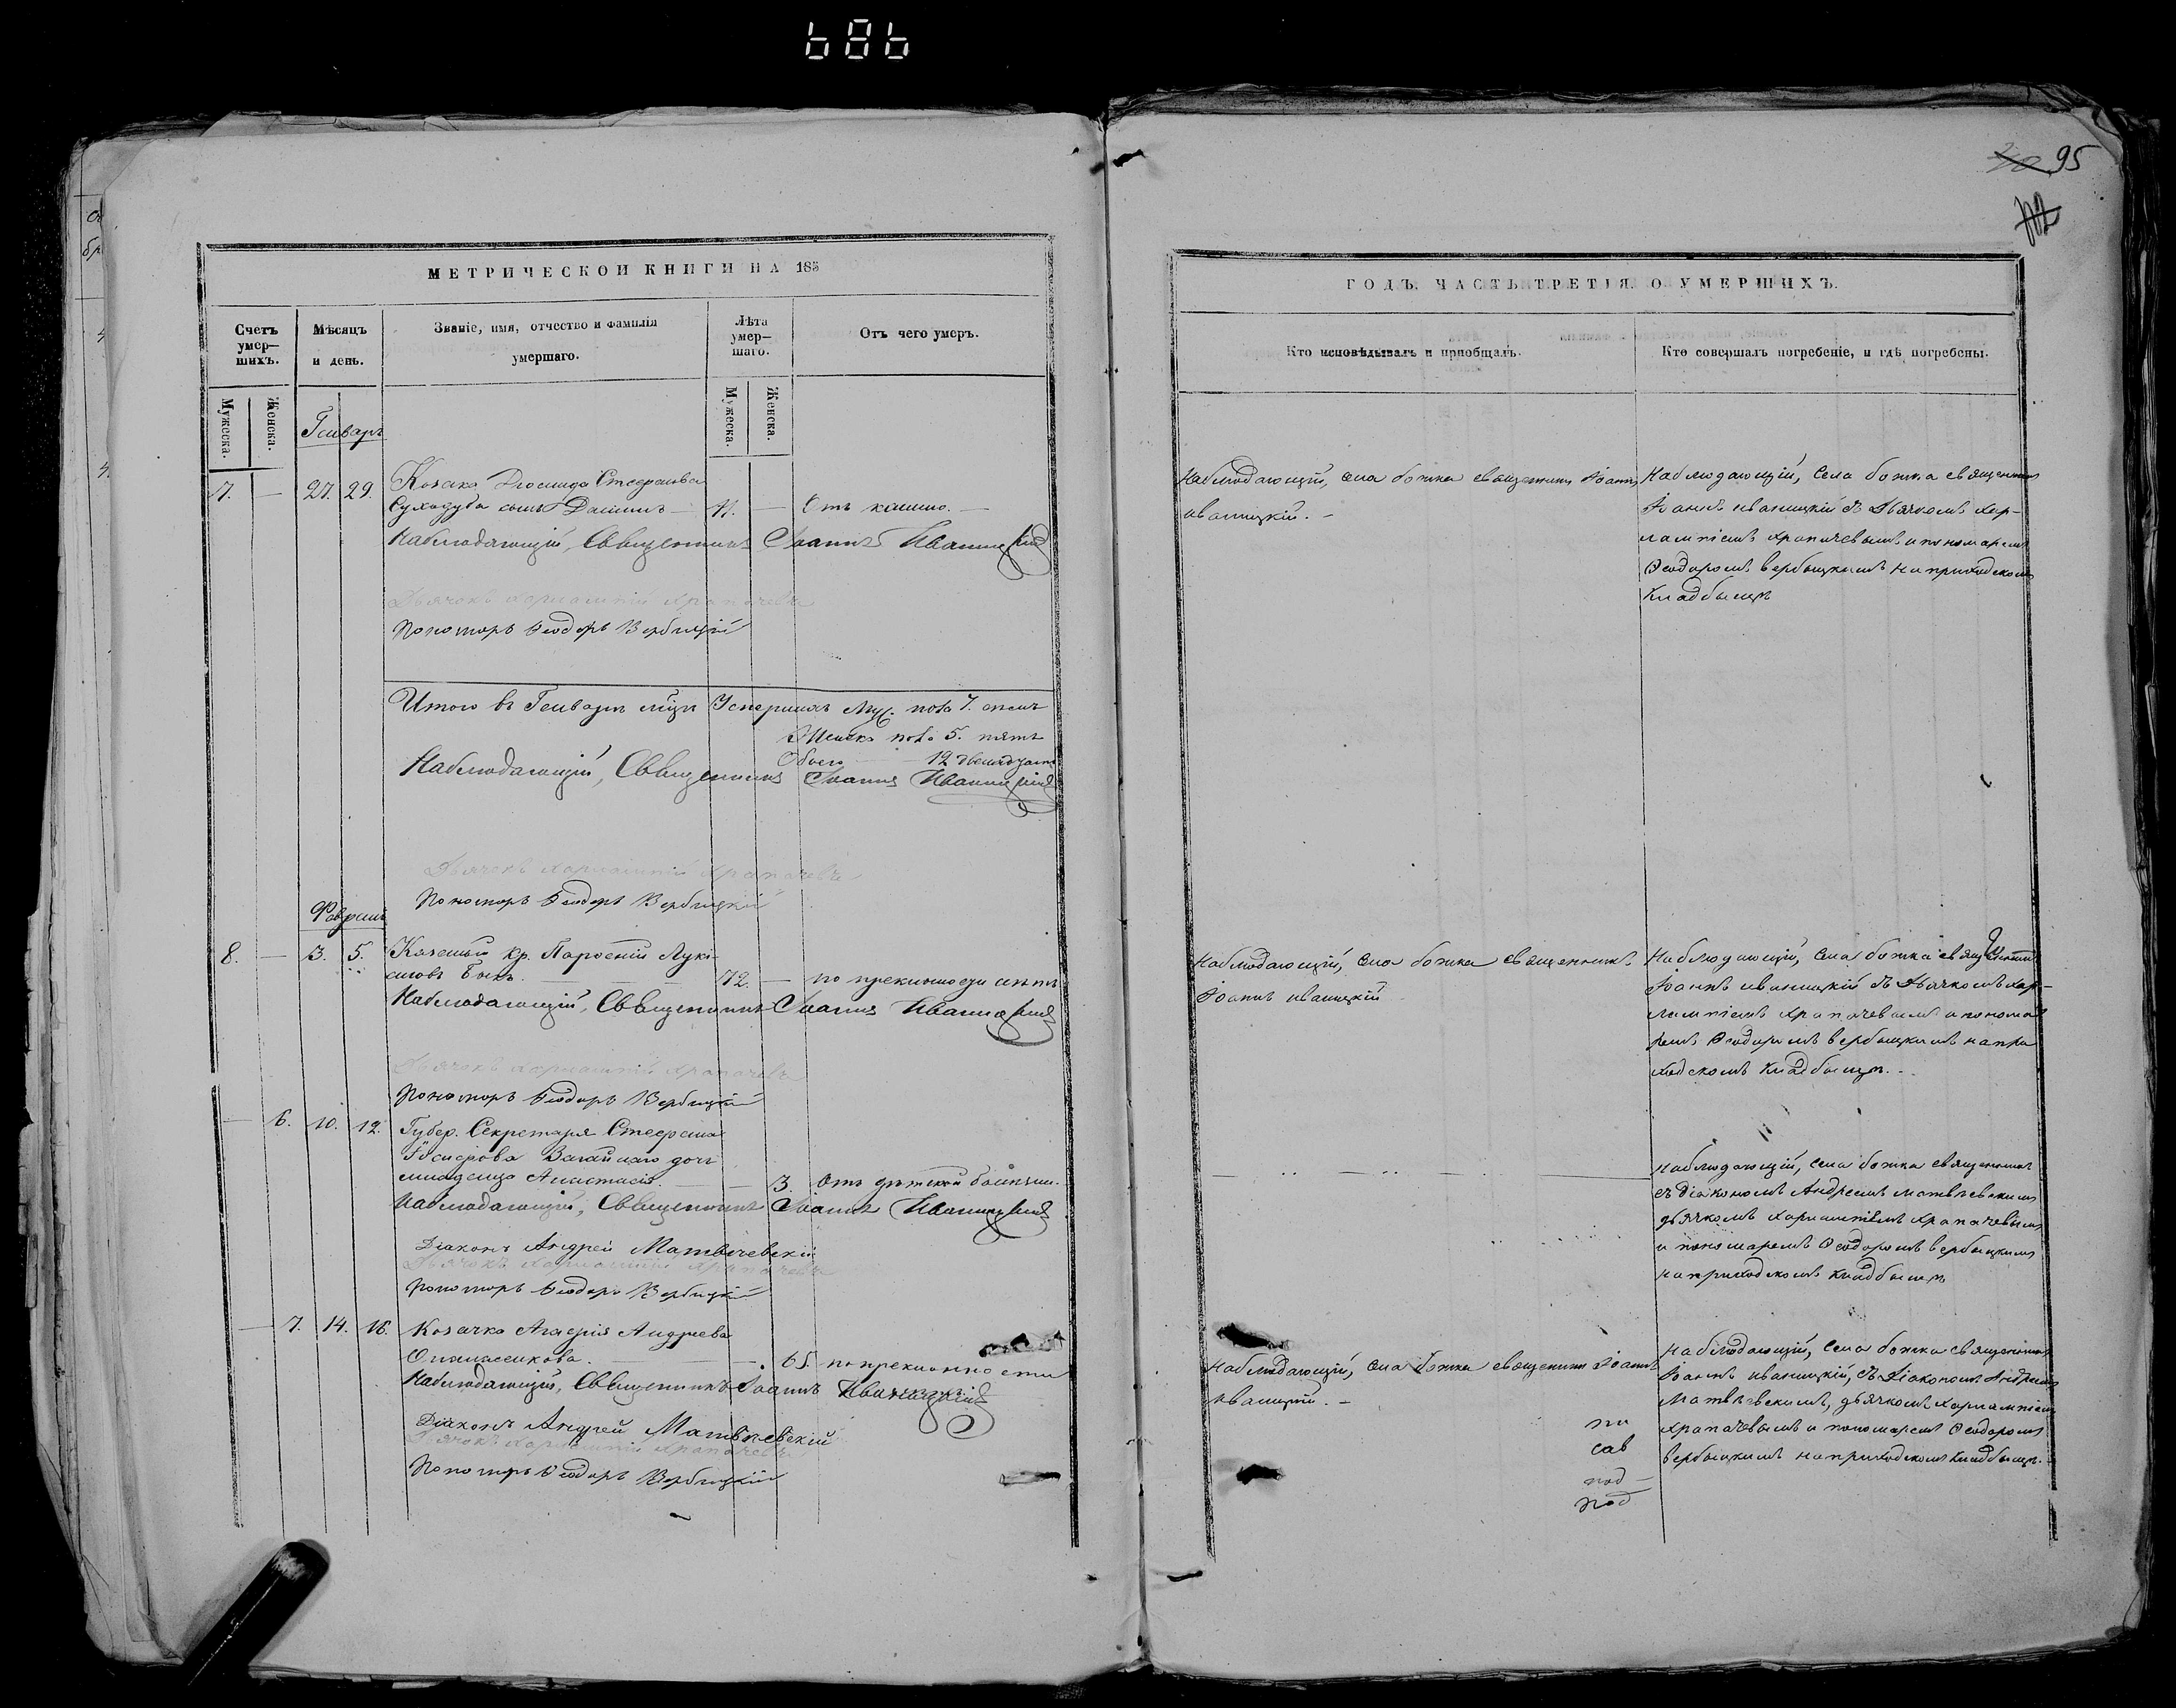 686
95
МЕТРИЧЕСКОЙ КНИГИ НА 185
Счетъ умер—шихъ.
Мѣсяцъ и день.
Званіе, имя, отчество и фамилія умершаго.
Лѣта умер—шаго.
Отъ чего умеръ.
Мужеска.
Женска.
Мужеска.
Женска.
Генварь
7. — 27. 29. Козака Стефанова
Суходуба сынъ — 11. — Отъ кашлю. —
Наблюдающій, Священникъ Іоаннъ Иваницкій
Дьячокъ Харлампій Храпачевъ
Пономарь Ѳеодоръ Вербицкій
Итого въ Генварѣ мцѣ Умершихъ Муж. пола 7. семь
Женска пола 5. пять
Обоего 12 двенадцать
Наблюдающій, Священникъ Іоаннъ Иваницкій
Дьячокъ Харлампій Храпачевъ
Пономарь Ѳеодоръ Вербицкій
Февраль
8. — 3. 5. Казеный кр. Парѳеній Луки—
72. — по преклоности лѣтъ
Наблюдающій, Священникъ Іоаннъ Иваницкій
Дьячокъ Харлампій Храпачевъ
Пономарь Ѳеодоръ Вербицкій
— 6. 10. 12. Губер. Секретаря Стефана
Іосифова дочь
младенца Анастасія. — — 3. Отъ дѣтской болѣзни.
Наблюдающій, Священникъ Іоаннъ Иваницкій
Діаконъ Андрей Матвѣевскій
Дьячокъ Харлампій Храпачевъ
Пономарь Ѳеодоръ Вербицкій
— 7. 14. 16. Козачка Агафія Андреева
Опанасенкова. — 65. по преклонности
Наблюдающій, Священникъ Іоаннъ Иваницкій
Діаконъ Андрей Матвѣевскій
Дьячокъ Харлампій Храпачевъ
Пономарь Ѳеодоръ Вербицкій
ГОДЪ. ЧАСТЬ ТРЕТІЯ. О УМЕРШИХЪ.
Кто исповѣдывалъ и приобщалъ.
Кто совершалъ погребеніе, и гдѣ погребены.
Наблюдающій, села божка священникъ Іоаннъ
иваницкій. —
Наблюдающій, села божка священникъ
Іоаннъ иваницкій съ Дьячкомъ Хар—
лампіемъ Храпачевымъ и пономаремъ
Ѳеодоромъ вербицкимъ на приходскомъ
кладбищѣ
Наблюдающій, села божка священникъ
Іоаннъ иваницкій
Наблюдающій, села божка священникъ
Іоаннъ иваницкій съ Дьячкомъ Хар—
лампіемъ Храпачевымъ и понома
ремъ Ѳеодоромъ вербицкимъ на при
ходскомъ кладбищѣ.
Наблюдающій, села божка священникъ
съ діакономъ Андреемъ матвѣевскимъ
дьячкомъ харлампіемъ храпачевымъ
и пономаремъ Ѳеодоромъ вербицкимъ
на приходскомъ кладбищѣ
Наблюдающій, села божка священникъ Іоаннъ
иваницкій. —
Наблюдающій, села божка священникъ
Іоаннъ иваницкій, съ Діакономъ Андреемъ
Матвѣевскимъ, дьячкомъ Харлампіемъ
Храпачевымъ и пономаремъ Ѳеодоромъ
вербицкимъ на приходскомъ кладбищѣ.
сав
под—
под